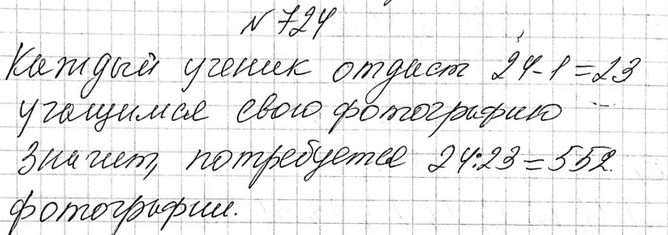 № 724
Каждый ученик отдаст 24-1=23
учащимся свою фотографию
Значит, потребуется 24:23=552.
фотографии.